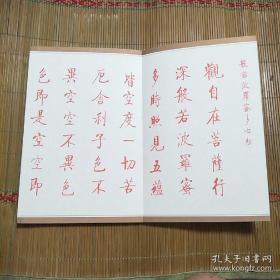 般若波羅蜜多心經
觀自在菩薩行
深般若波羅蜜
多時照見五蘊
皆空度一切苦
厄舍利子色不
異空空不異色
色即是空空即
孔夫子旧书网